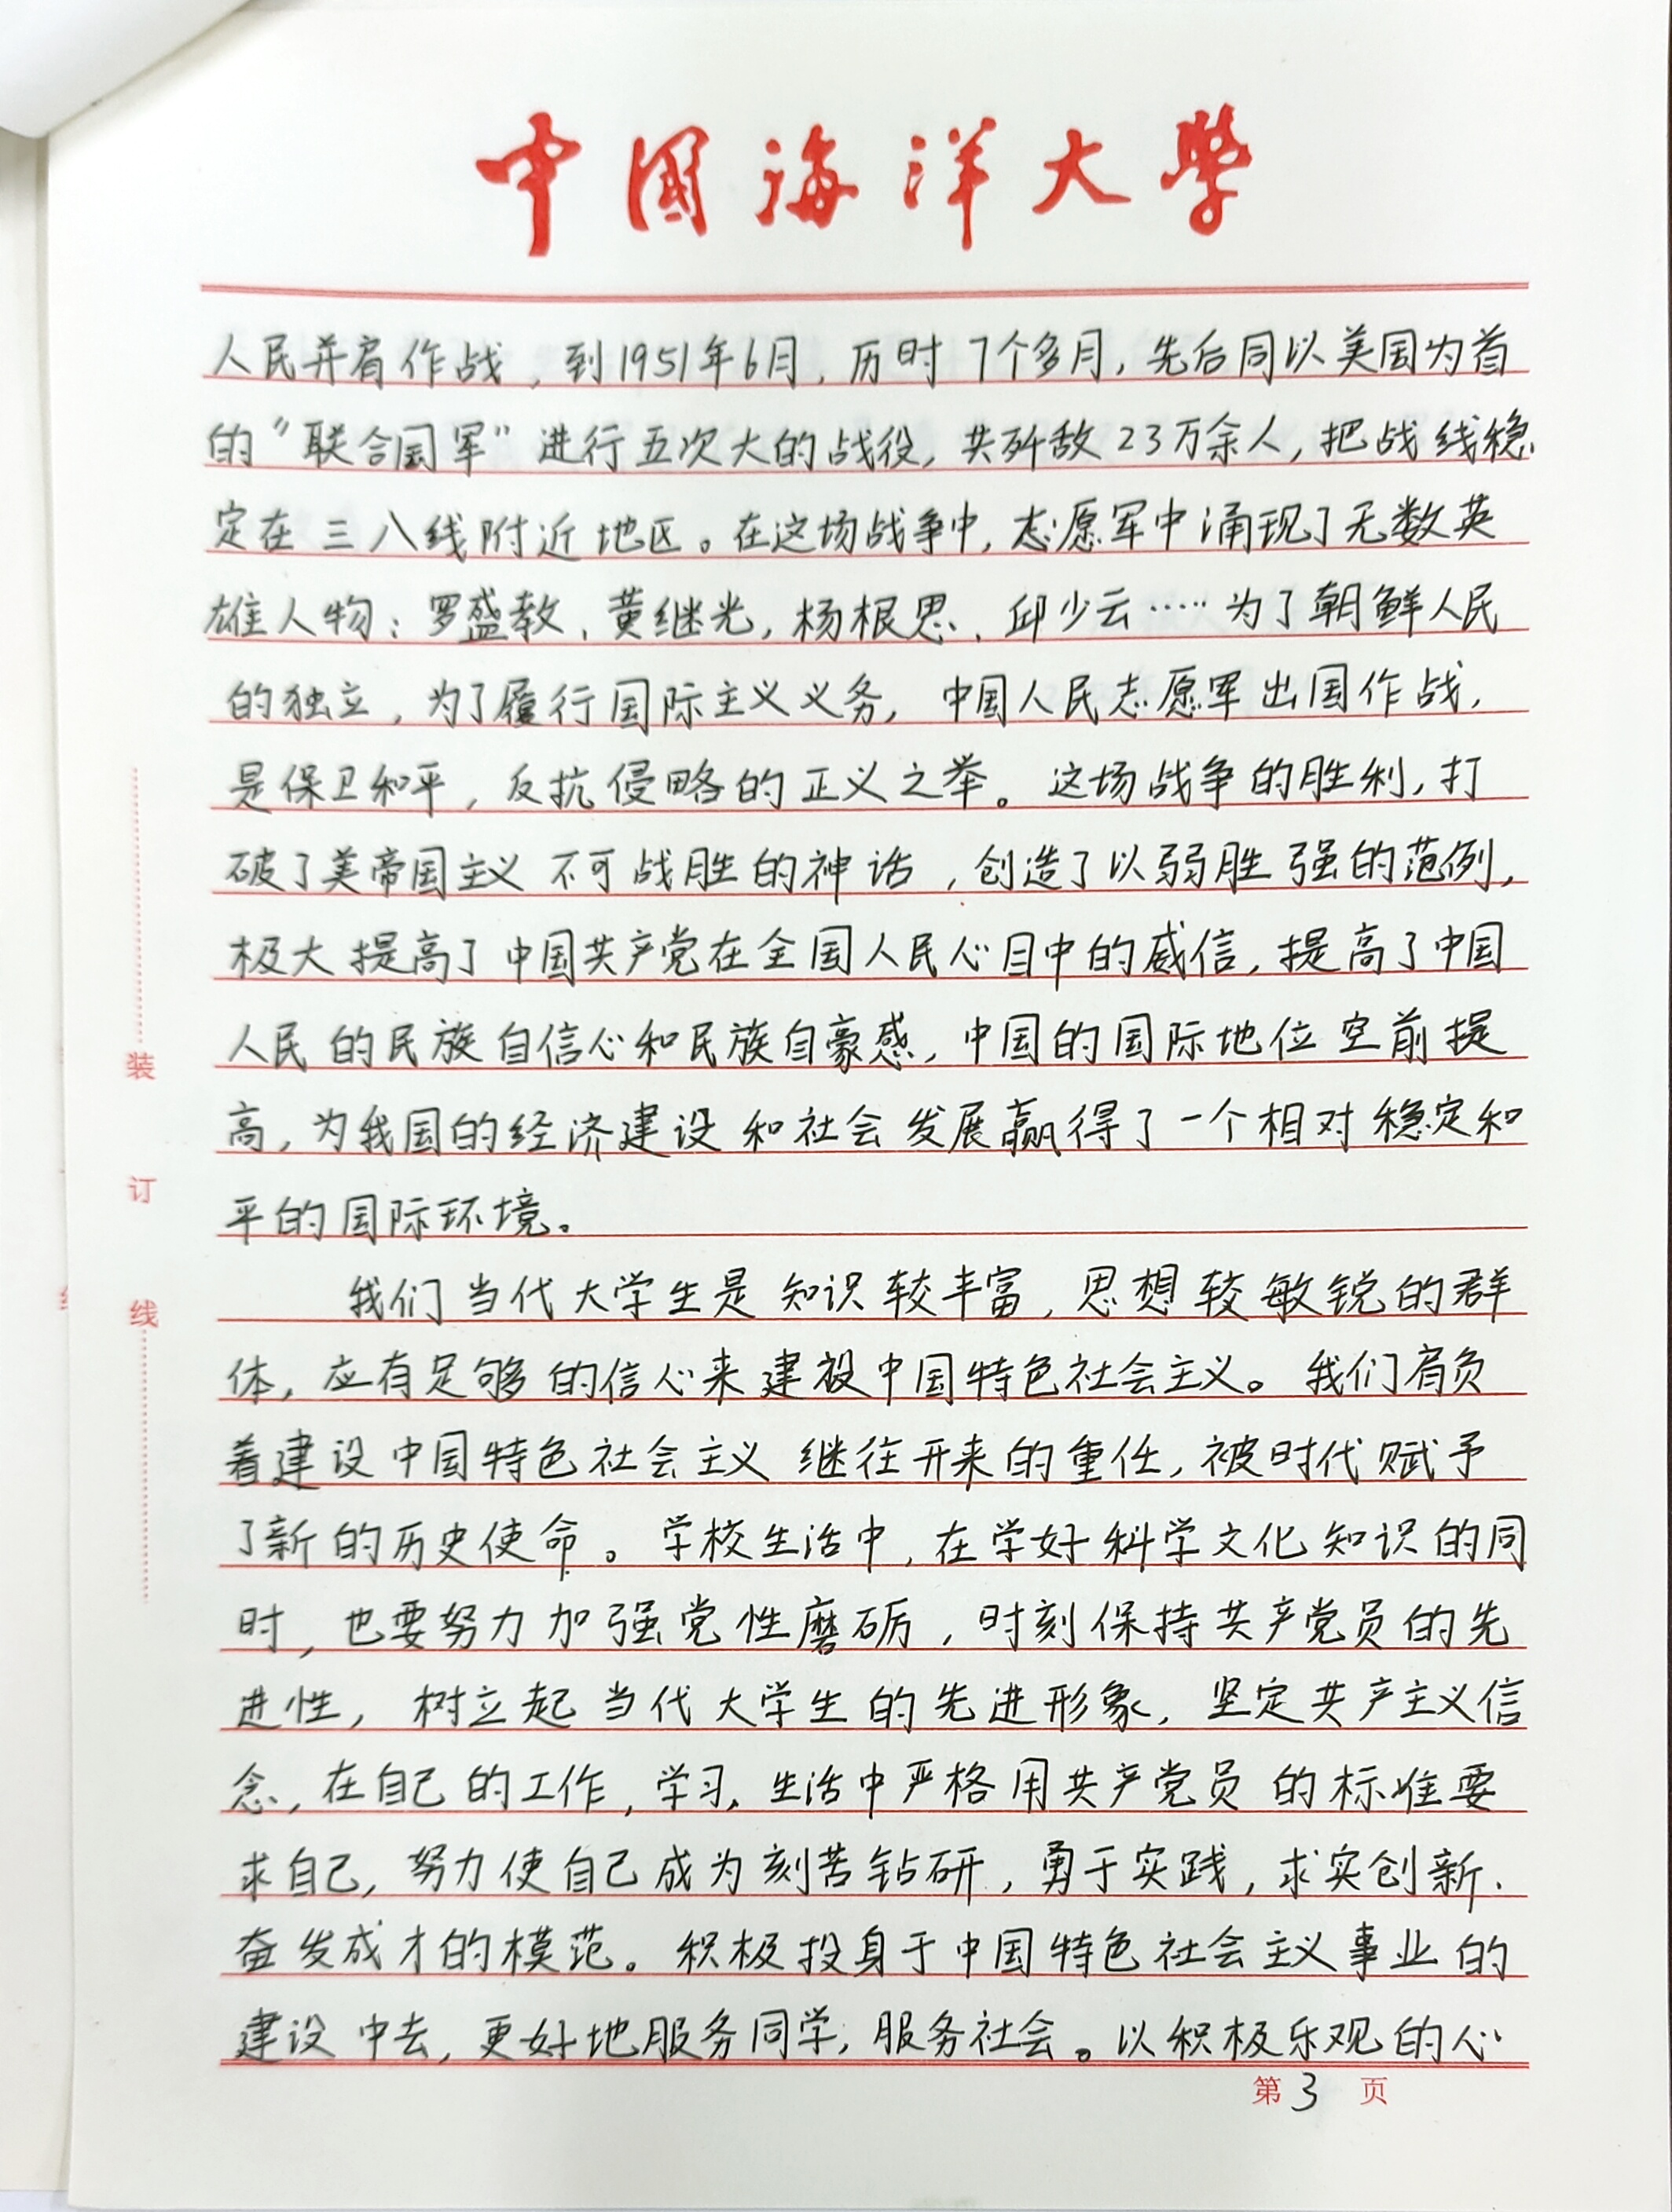 中国海洋大学
人民并肩作战，到1951年6月，历时7个多月，先后同以美国为首
的“联合国军”进行五次大的战役，共歼敌23万余人，把战线稳
定在三八线附近地区。在这场战争中，志愿军中涌现了无数英
雄人物：罗盛教、黄继光，杨根思、邱少云……为了朝鲜人民
的独立，为了履行国际主义义务，中国人民志愿军出国作战，
是保卫和平，反抗侵略的正义之举。这场战争的胜利，打
破了美帝国主义不可战胜的神话，创造了以弱胜强的范例，
极大提高了中国共产党在全国人民心目中的威信，提高了中国
人民的民族自信心和民族自豪感，中国的国际地位空前提
高，为我国的经济建设和社会发展赢得了一个相对稳定和
平的国际环境。
我们当代大学生是知识较丰富，思想较敏锐的群
体，应有足够的信心来建设中国特色社会主义。我们肩负
着建设中国特色社会主义继往开来的重任，被时代赋予
了新的历史使命。学校生活中，在学好科学文化知识的同
时，也要努力加强党性磨砺，时刻保持共产党员的先
进性，树立起当代大学生的先进形象，坚定共产主义信
念，在自己的工作，学习、生活中严格用共产党员的标准要
求自己，努力使自己成为刻苦钻研，勇于实践，求实创新、
奋发成才的模范。积极投身于中国特色社会主义事业的
建设中去，更好地服务同学，服务社会。以积极乐观的心
第3页
装
订
线